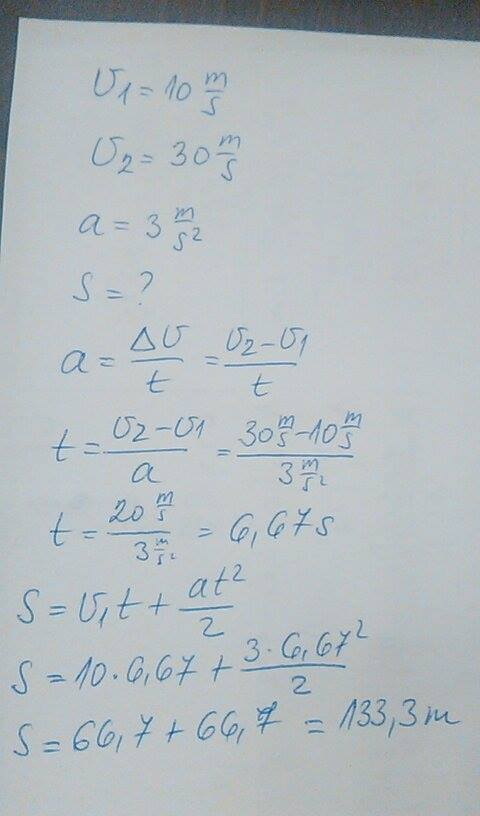 υ₁ = 10 m/s
υ₂ = 30 m/s
a = 3 m/s²
s = ?
a = Δυ/t = υ₂-υ₁/t
t = υ₂-υ₁/a = 30 m/s - 10 m/s / 3 m/s²
t = 20 m/s / 3 m/s² = 6,67 s
s = υ₁t + at²/2
s = 10 · 6,67 + 3 · 6,67²/2
s = 66,7 + 66,7 = 133,3 m